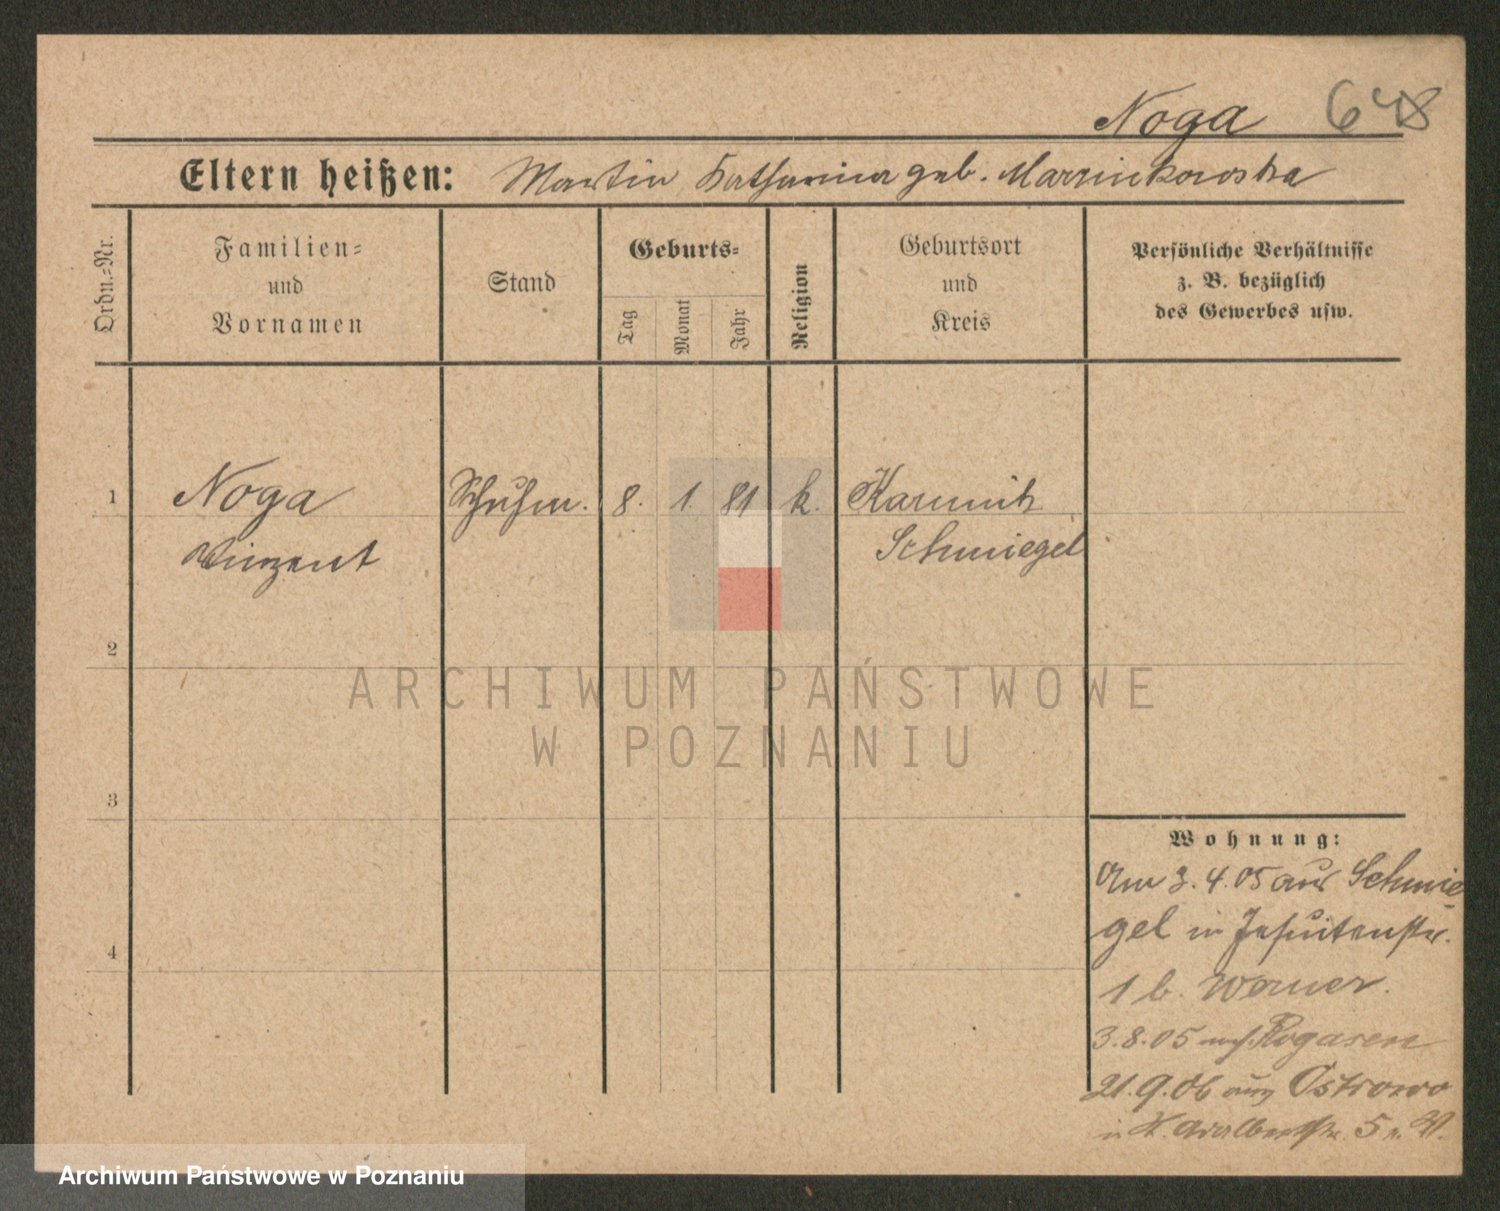 Noga 648
Eltern heißen: Martin Katharina geb. Marzinkowska
Ordn.-Nr.
Familien-
und
Vornamen
Stand
Geburts-
Tag
Monat
Jahr
Religion
Geburtsort
und
Kreis
Persönliche Verhältnisse
z. B. bezüglich
des Gewerbes usw.
1 Noga Schuhm. 8. 1. 81 k. Karmin
Vinzent Schmiegel
2
3
4
Wohnung:
Am 3.4.05 aus Schmie-
gel in Jesuitenstr.
1 b. Werner.
3.8.05 nach Rogasen
21.9.06 aus Ostrowo
in St. Adalbertstr. 5
ARCHIWUM PAŃSTWOWE
W POZNANIU
Archiwum Państwowe w Poznaniu